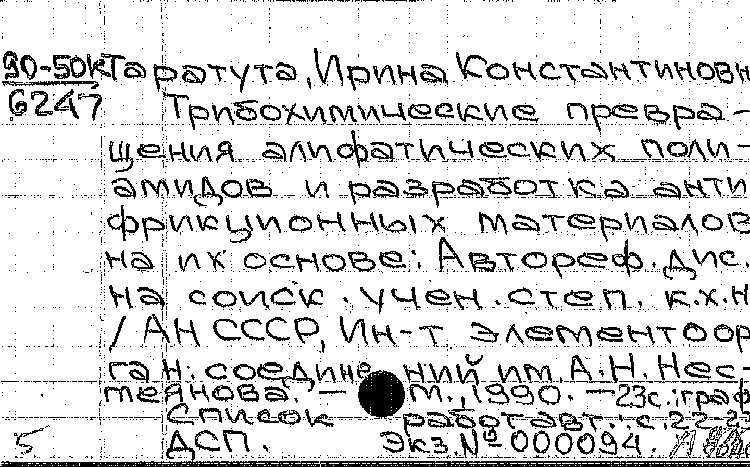 90-50К Таратута, Ирина Константиновн
6247 Трибохимические превра-
щения алифатических поли-
амидов и разработка анти
фрикционных материалов
на их основе: Автореф. дис.
на соиск. учен. степ. к.х.н
/ АН СССР, Ин-т элементоор
ган. соедине ний им. А.Н. Нес-
меянова. — М., 1990. — 23с.: граф
Список работ авт.: с.22-23
5 ДСП. Экз. № 000094.